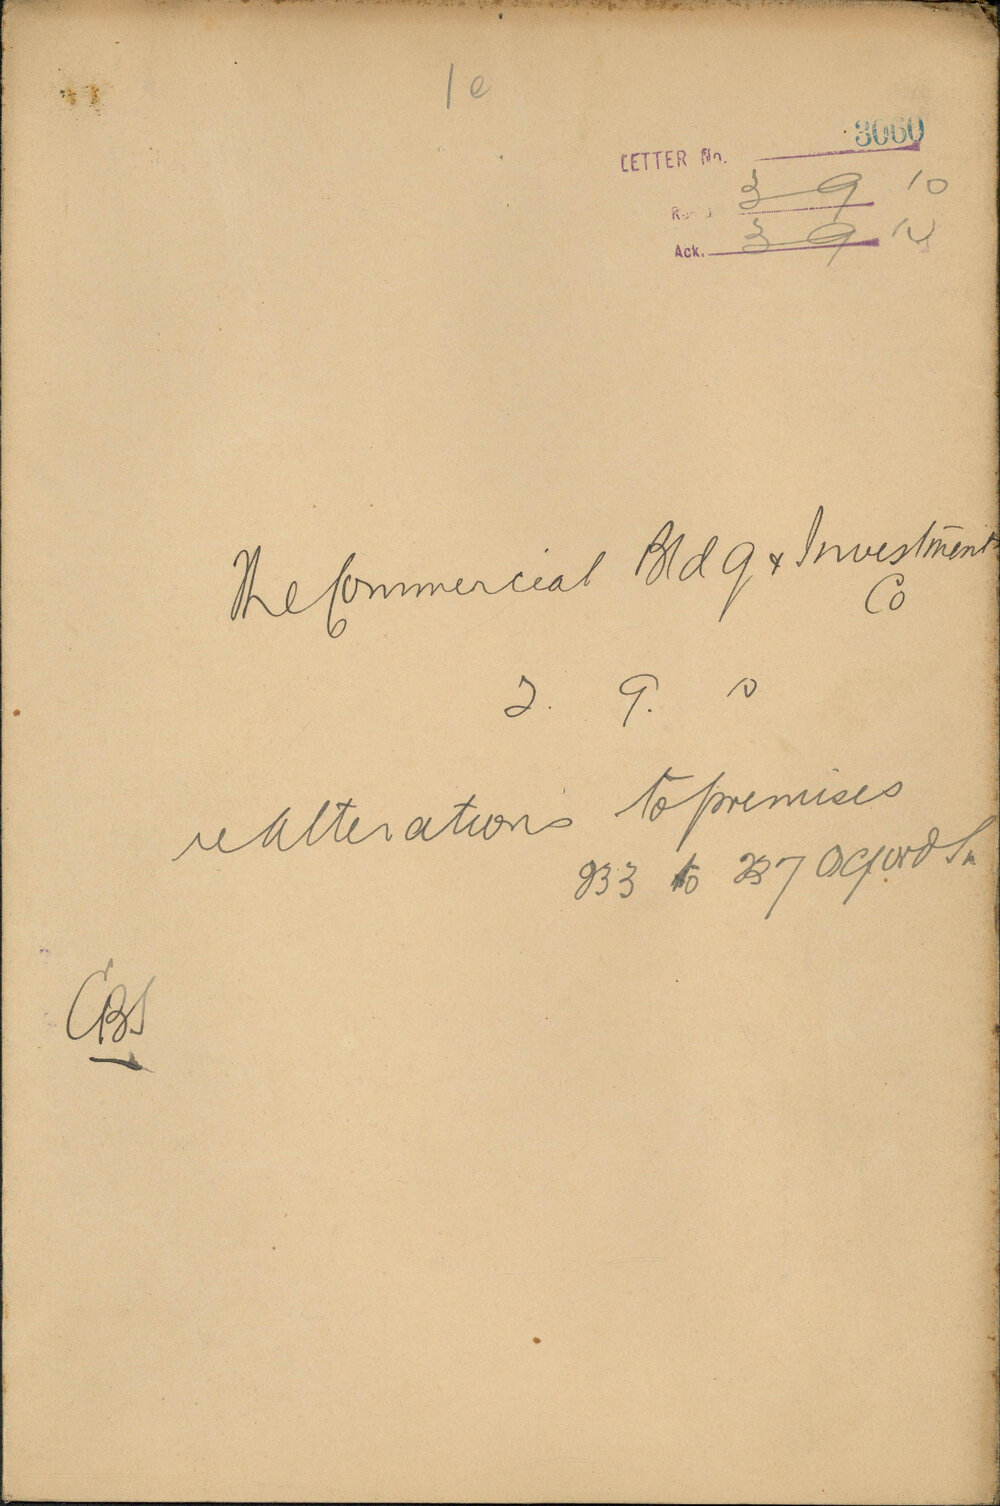 1e
3060
LETTER No.
Rec'd 3 9 10
Ack. 3 9 10
The Commercial Bldg & Investment
Co
2. 9. 10
re Alterations to premises
233 to 237 Oxford St
CBS